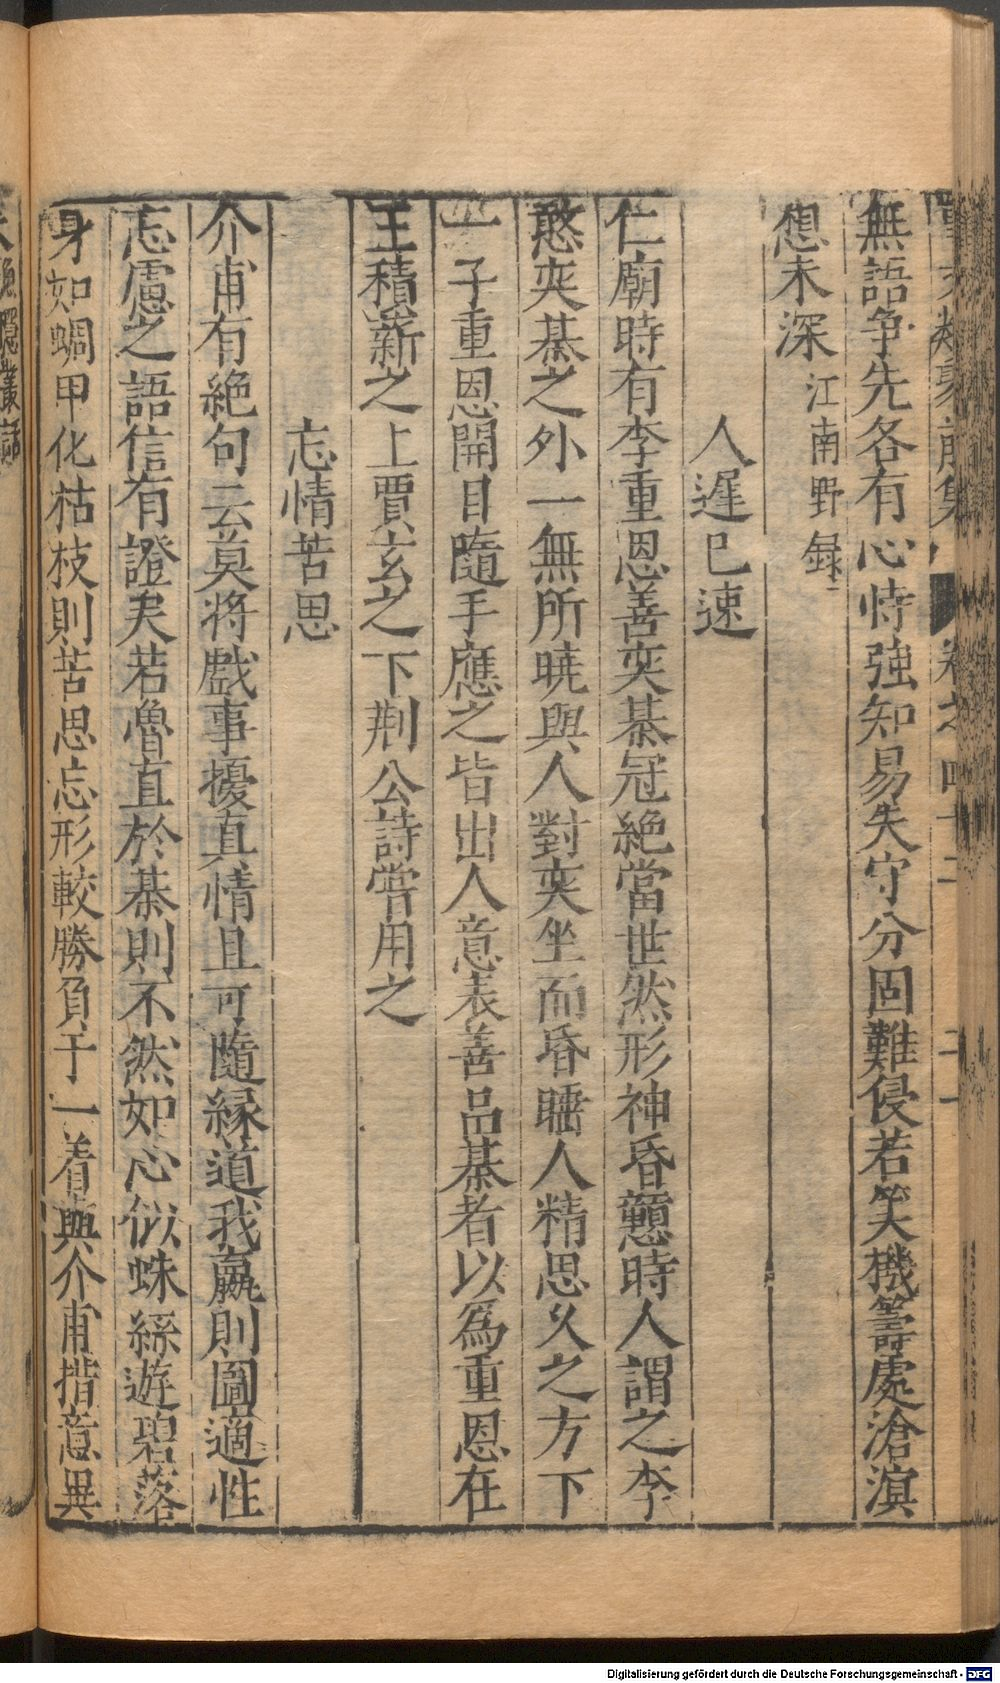 無語争先各有心恃強知易失守分固難侵若笑機籌處滄溟
想未深江南野録
人遲已速
仁廟時有李重恩善奕棊冠絶當世然形神昏戇時人謂之李
憨奕棊之外一無所曉與人對奕坐而昏睡人精思久之方下
一子重恩開目隨手應之皆出人意表善品棊者以為重恩在
王積薪之上賈玄之下荆公詩嘗用之
忘情苦思
介甫有絶句云莫将戲事擾真情且可隨縁道我嬴則圖適性
忘慮之語信有證矣若魯直於棊則不然如心似蛛絲遊碧落
身如蜩甲化枯枝則苦思忘形較勝負于一着與介甫措意異
Digitalisierung gefördert durch die Deutsche Forschungsgemeinschaft - DFG